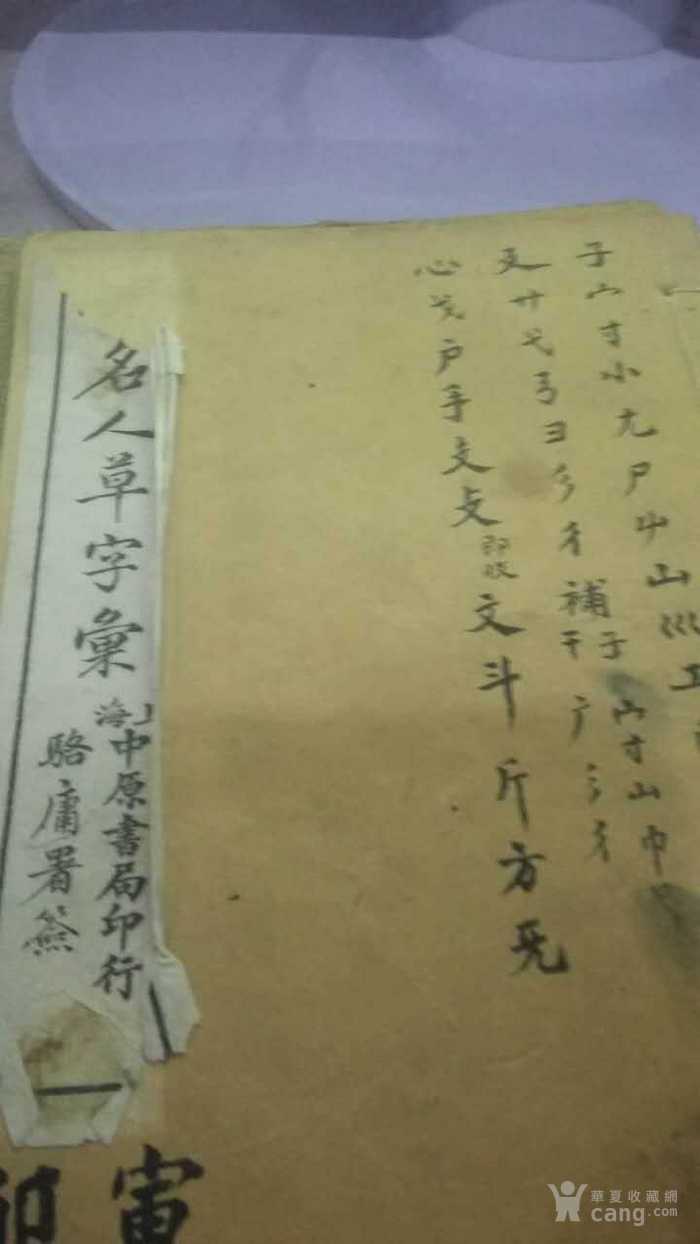 子宀寸小尢尸屮山巛工
廴廾弋弓彐彡彳補干子宀寸山巾
广彡彳
心戈户手支攴即攵文斗斤方无
名人草字彙
上海中原書局印行
駱庸署簽
甯
華夏收藏網
cang.com